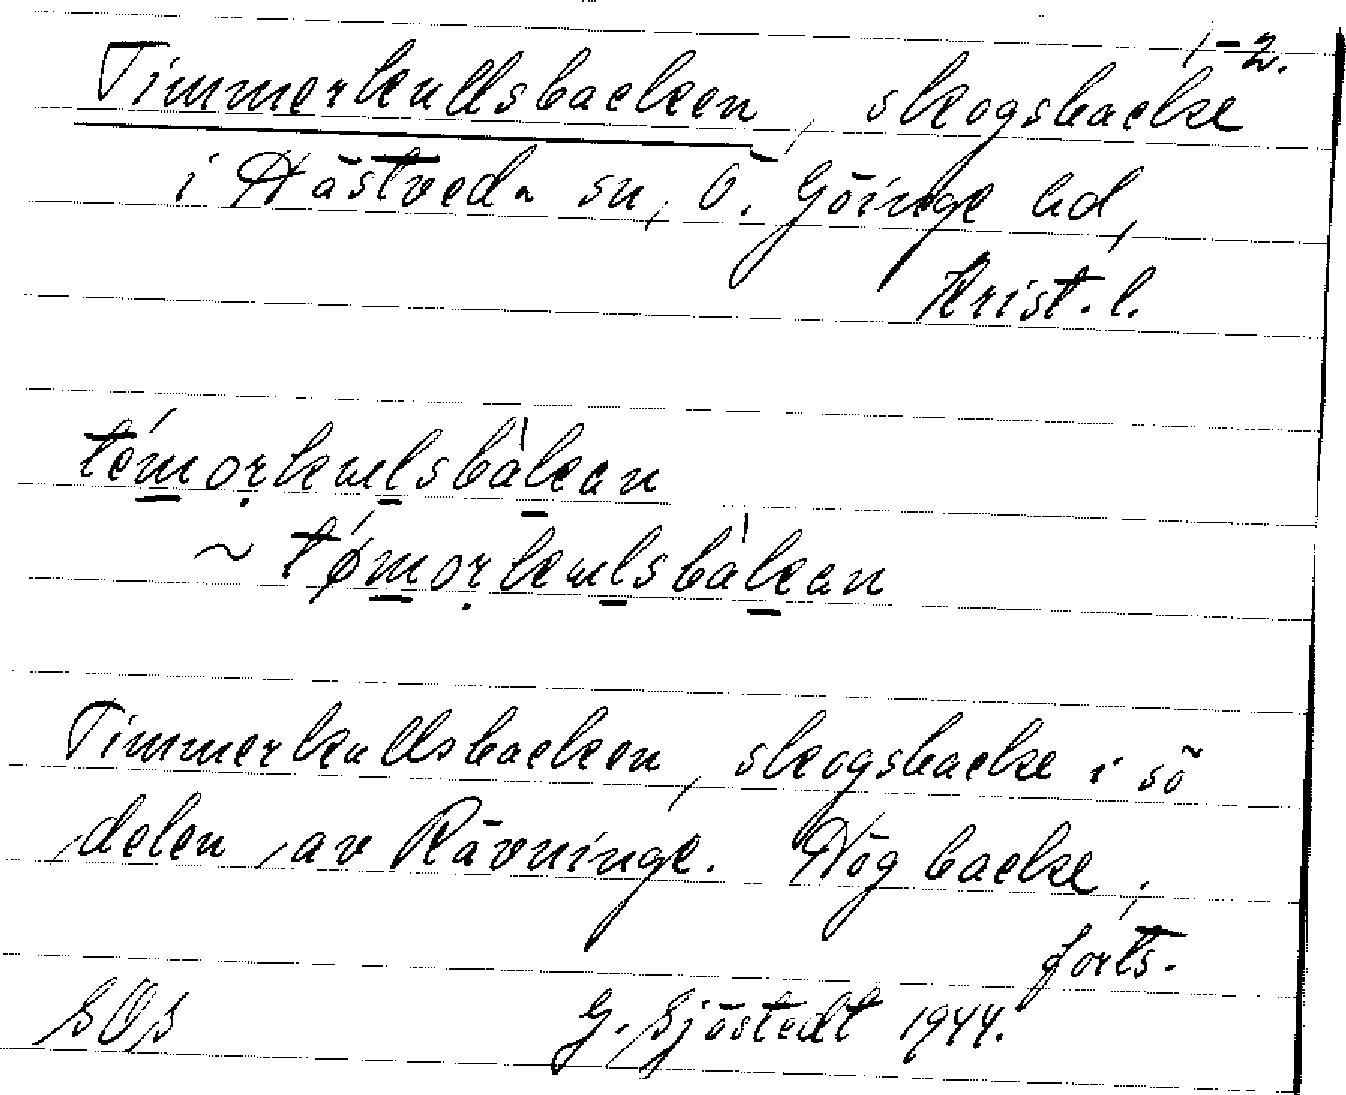 1-2.
Timmerkullsbacken, skogsbacke
i Hästveda sn, Ö. Göinge hd,
Krist. l.
témorkulsbàkan
~ tǿmorkulsbàkan
Timmerkullsbacken, skogsbacke i sö
delen av Rävninge. Hög backe,
forts.
SOS G. Sjöstedt 1944.